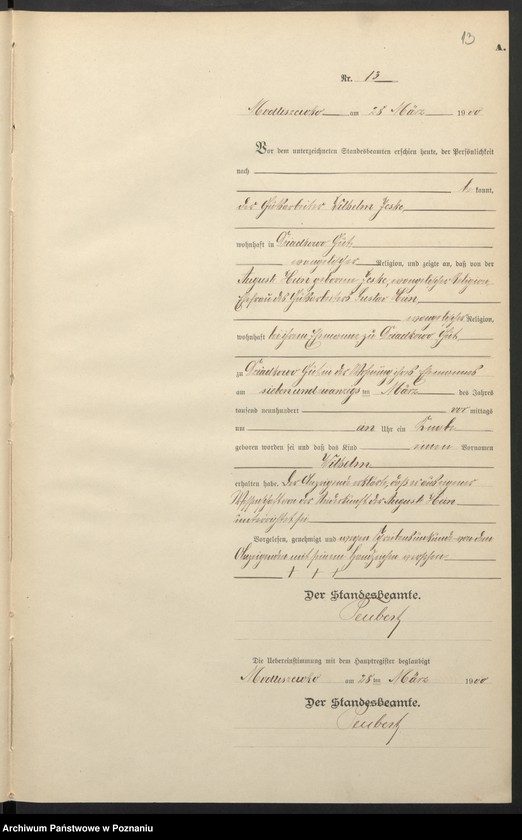 13
A.
Nr. 13
Modliszewko am 28 März 1900
Vor dem unterzeichneten Standesbeamten erschien heute, der Persönlichkeit
nach
be kannt,
der Gutsarbeiter Wilhelm Jeske
wohnhaft in Dziadkowo Gut
evangelischer Religion, und zeigte an, daß von der
August Hein geborenen Jeske, evangelischer Religion
Ehefrau des Gutsarbeiters Gustav
evangelischer Religion,
wohnhaft bei ihrem Ehemanne zu Dziadkowo Gut
zu Dziadkowo Gut in der Wohnung ihres Ehemannes
am sieben und zwanzigsten März des Jahres
tausend neunhundert vor mittags
um ein Uhr ein Knabe
geboren worden sei und daß das Kind einen Vornamen
Wilhelm
erhalten habe. Der Anzeigende erklärte, daß er aus eigener
Wissenschaft von der Niederkunft der August
unterrichtet sei
Vorgelesen, genehmigt und wegen Schreibensunkunde von dem
Anzeigenden mit seinem Handzeichen versehen
+ + +
Der Standesbeamte.
Der Uebereinstimmung mit dem Hauptregister beglaubigt
Modliszewko am 28 ten März 1900
Der Standesbeamte.
Archiwum Państwowe w Poznaniu